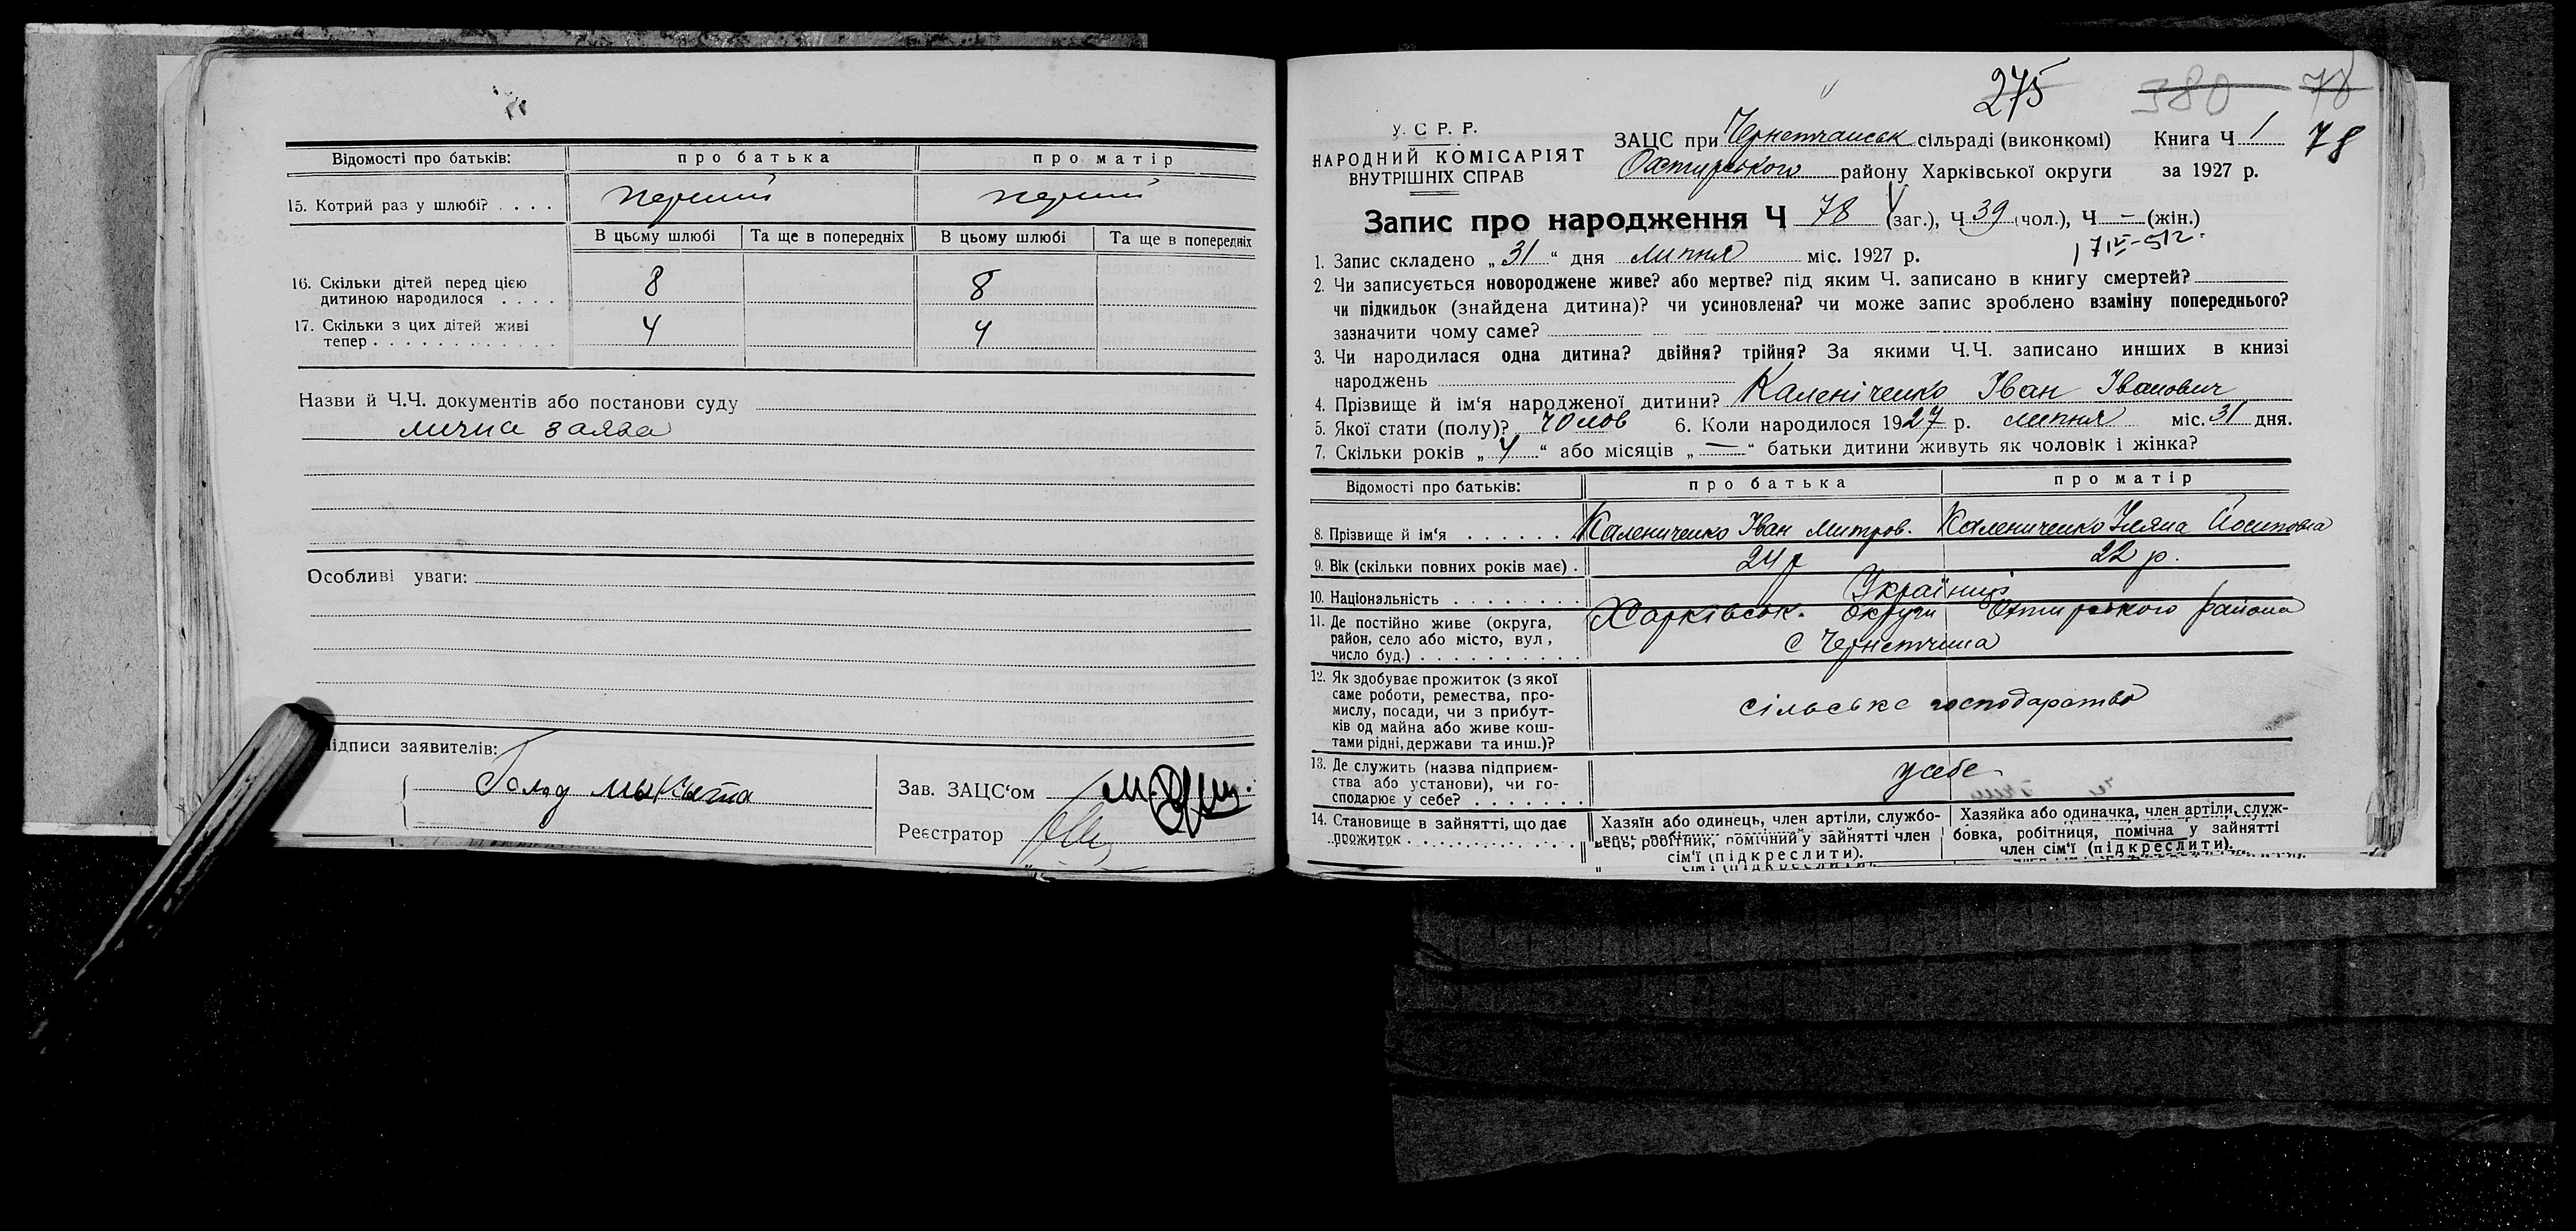 Відомості про батьків: про батька про матір
15. Котрий раз у шлюбі? . . . . перший перший
В цьому шлюбі Та ще в попередніх В цьому шлюбі Та ще в попередніх
16. Скільки дітей перед цією
дитиною народилося . . . . 8 8
17. Скільки з цих дітей живі
тепер . . . . . . . . . . . . . 4 4
Назви й Ч.Ч. документів або постанови суду
лична заява
Особливі уваги:
ідписи заявителів:
Голод Мыкыта
Зав. ЗАЦС'ом
Реєстратор
275 380 78
У. С. Р. Р.
НАРОДНИЙ КОМІСАРІЯТ
ВНУТРІШНІХ СПРАВ
ЗАЦС при Чернетчанськ сільраді (виконкомі) Книга Ч 1 78
Охтирського району Харківської округи за 1927 р.
Запис про народження Ч 78 (заг.), Ч 39 (чол.), Ч — (жін.)
1. Запис складено „31" дня липня міс. 1927 р.
2. Чи записується новороджене живе? або мертве? під яким Ч. записано в книгу смертей?
чи підкидьок (знайдена дитина)? чи усиновлена? чи може запис зроблено взаміну попереднього?
зазначити чому саме?
3. Чи народилася одна дитина? двійня? трійня? За якими Ч.Ч. записано инших в книзі
народжень
4. Прізвище й ім'я народженої дитини? Каленіченко Іван Іванович
5. Якої стати (полу)? чолов 6. Коли народилося 1927 р. липня міс. 31 дня.
7. Скільки років „4" або місяців „—" батьки дитини живуть як чоловік і жінка?
Відомості про батьків: про батька про матір
8. Прізвище й ім'я . . . . . . Калениченко Іван Митров. Калениченко Уляна Йосиповна
9. Вік (скільки повних років має) . 24 р 22 р.
10. Національність . . . . . . . . Українці
11. Де постійно живе (округа,
район, село або місто, вул,
число буд.) . . . . . . . . . .
Харківськ. округи Охтирського района
с Чернетчина
12. Як здобуває прожиток (з якої
саме роботи, ремества, про-
мислу, посади, чи з прибут-
ків од майна або живе кош-
тами рідні, держави та инш.)?
сільське господарство
13. Де служить (назва підприєм-
ства або установи), чи го-
сподарює у себе? . . . . . . .
у себе
14. Становище в зайнятті, що дає
прожиток . . . . . . . . . . . . . .
Хазяїн або одинець, член артіли, службо-
вець, робітник, помічний у зайнятті член
сім'ї (підкреслити).
Хазяйка або одиначка, член артіли, служ-
бовка, робітниця, помічна у зайнятті
член сім'ї (підкреслити).